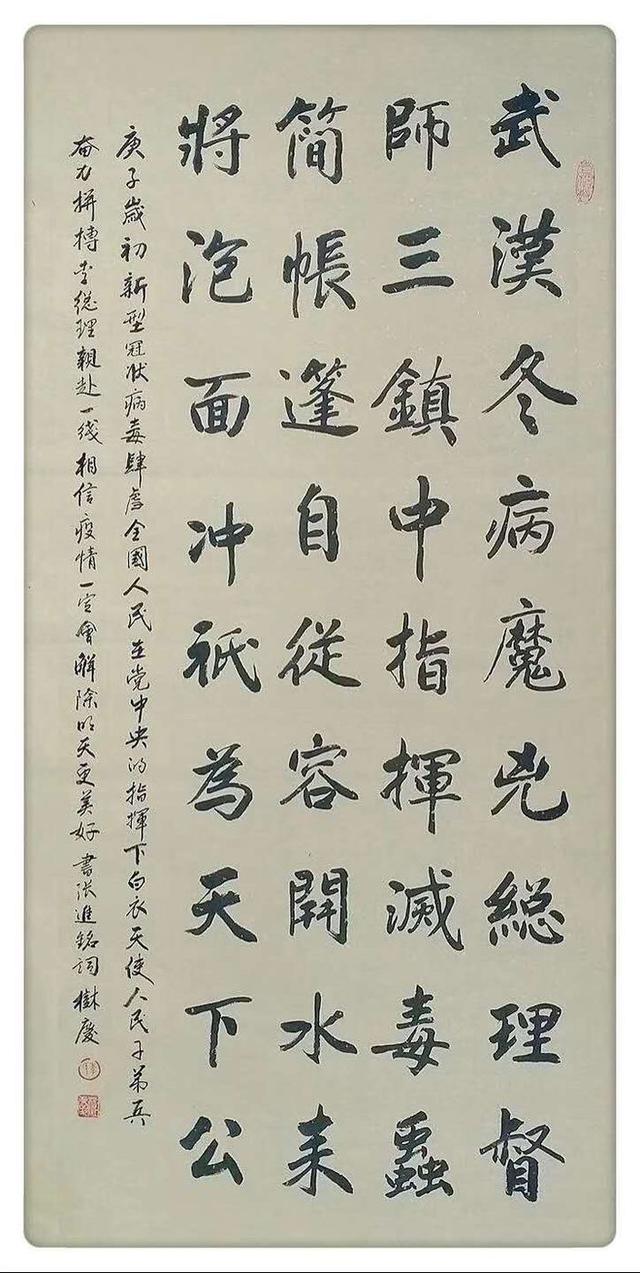 武漢冬病魔兇総理督
師三鎮中指揮滅毒蟲
簡帳篷自從容開水来
將泡面冲祇為天下公
庚子歲初新型冠狀病毒肆虐全國人民在党中央的指揮下白衣天使人民子弟兵
奋力拼搏李総理親赴一线相信疫情一定會解除明天更美好書张進銘詞樹慶